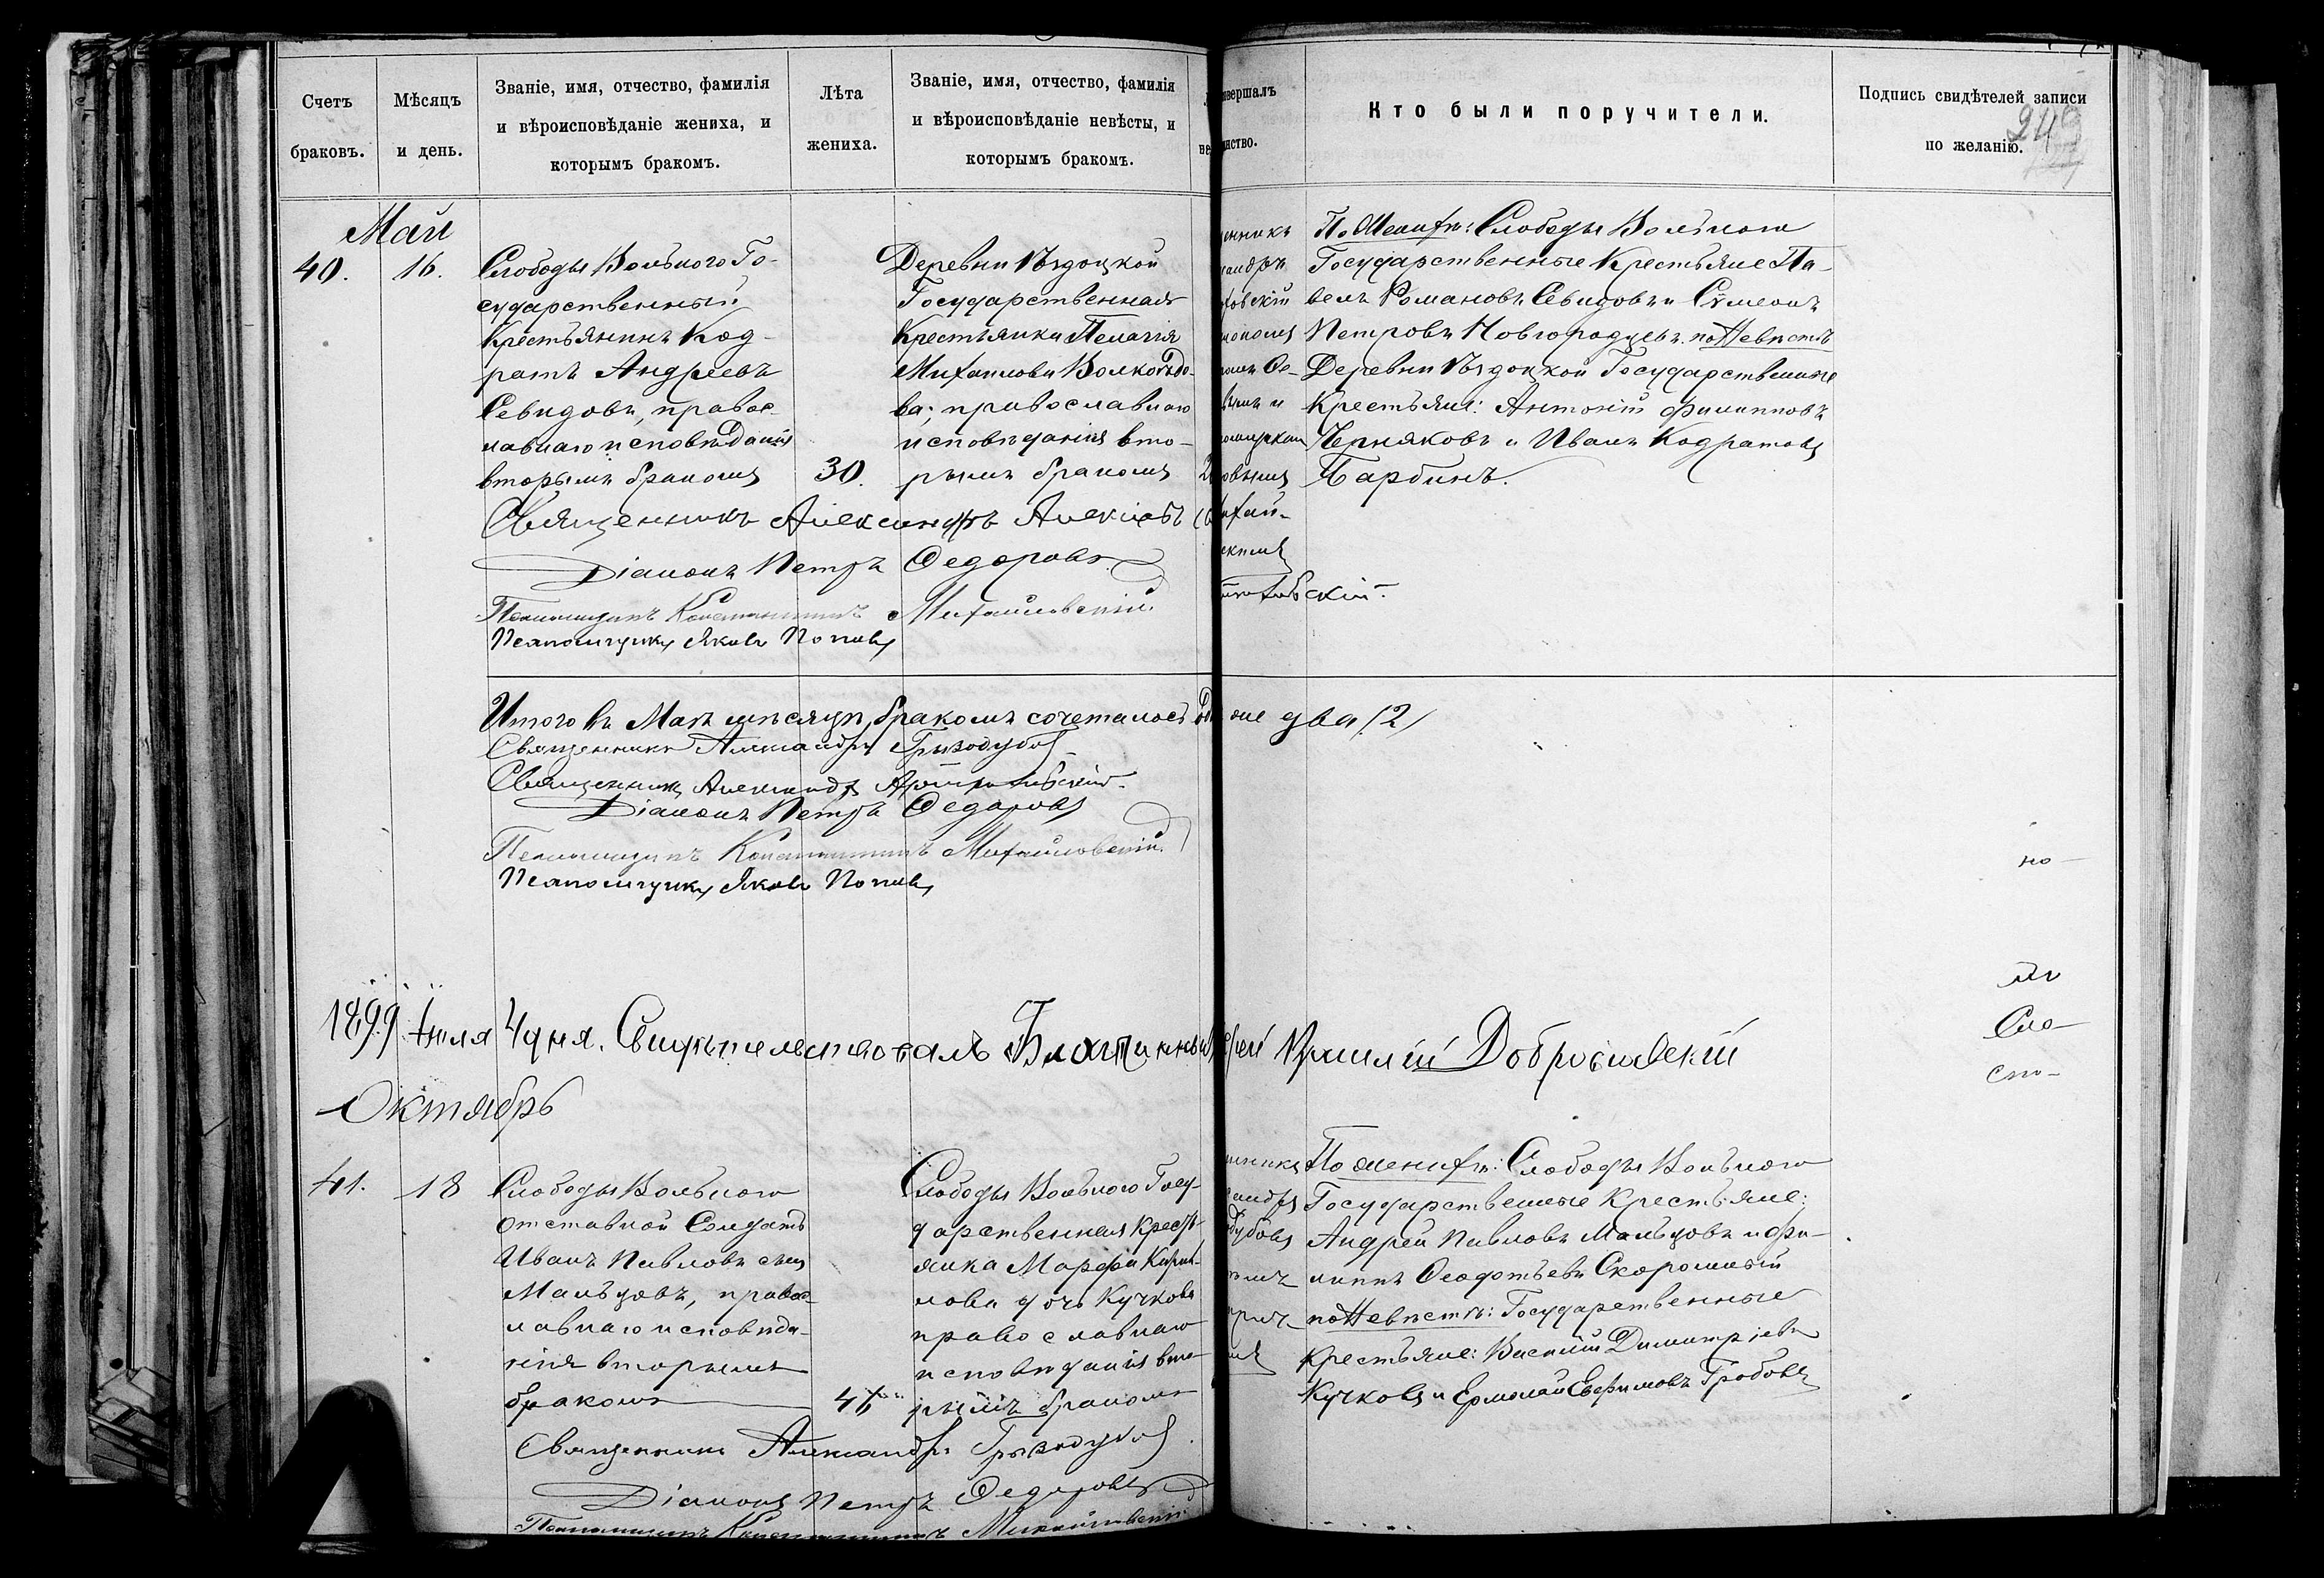 Счетъ
браковъ.
Мѣсяцъ
и день.
Званіе, имя, отчество, фамилія
и вѣроисповѣданіе жениха, и
которымъ бракомъ.
Лѣта
жениха.
Званіе, имя, отчество, фамилія
и вѣроисповѣданіе невѣсты, и
которымъ бракомъ.
вершалъ
нство.
Кто были поручители.
Подпись свидѣтелей записи
по желанію.
Май
40.
16.
Слободы Вольного Го-
сударственный
Крестьянинъ Код-
ратъ Андреевъ
Севидовъ, правос-
лавнаго исповѣданія
вторымъ бракомъ
30.
Деревни Ѣздоцкой
Государственная
Крестьянка Пелагія
Михаилова Волкодо-
ва; православнаго
исповѣданія вто-
рымъ бракомъ
По Женихѣ: Слободы Вольного
Государственные Крестьяне Па-
велъ Романовъ Севидовъ и Сѵмеонъ
Петровъ Новгородцевъ. по Невѣстѣ
Деревни Ѣздоцкой Государственные
Крестьяне: Антоній Филипповъ
Черняковъ и Иванъ Кодратовъ
Барбинъ.
Священникъ Александръ
Діаконъ Петръ Федоровъ
Псаломщикъ Константинъ Михайловскій
Псаломщикъ Яковъ Поповъ
Итого въ Маѣ мѣсяцѣ, бракомъ сочеталось два /2/
Священникъ Александръ Грызодубовъ
Священникъ Александръ
Діаконъ Петръ Федоровъ
Псаломщикъ Константинъ Михайловскій
Псаломщикъ Яковъ Поповъ
но-
Сло-
спо-
1899 Іюля 4 дня. Свидѣтельствовалъ Благочинный Іерей Василій Доброславскій
Октябрь
41.
18
Слободы Вольного
отставной Солдатъ
Иванъ Павловъ сынъ
Мальцовъ, правос-
лавнаго исповѣда-
нія вторымъ
бракомъ
Слободы Вольного Госу-
дарственная Крестъ-
янка Марфа Кирил-
лова дочь Кучкова
православнаго
исповѣданія вто-
рымъ бракомъ
По женихѣ: Слободы Вольного
Государственные Крестьяне:
Андрей Павловъ Мальцовъ и Фи-
липпъ Феодотьевъ Скорошный
по Невѣстѣ: Государственные
Крестьяне: Василій Димитріевъ
Кучковъ и Ермолай Евфимовъ Гробовъ
Священникъ Александръ Грызодубовъ
Діаконъ Петръ Федоровъ
Псаломщикъ Константинъ Михайловскій